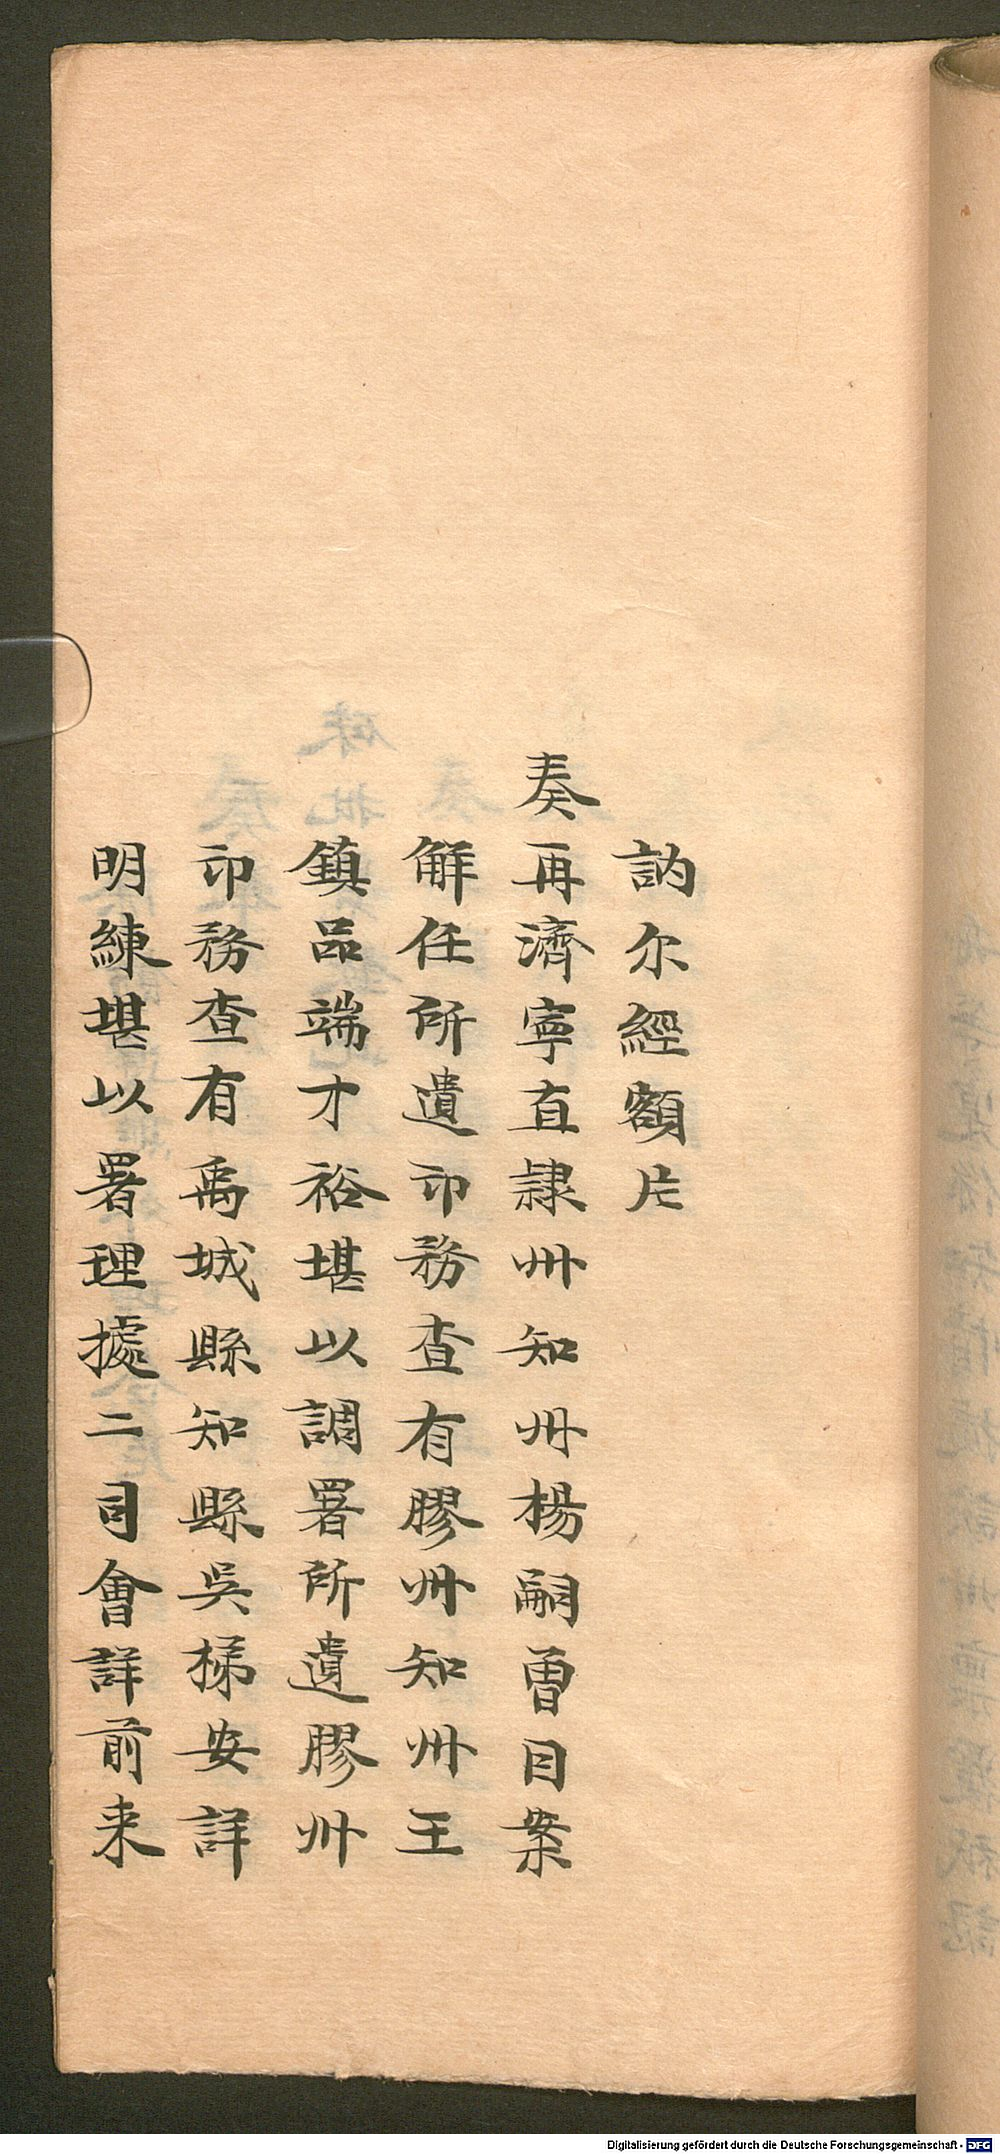 訥尔經額片
奏再濟寧直隸州知州楊嗣曾因案
解任所遺印務查有膠州知州王
鎮品端才裕堪以調署所遺膠州
印務查有禹城縣知縣吳梯安詳
明練堪以署理據二司會詳前来
Digitalisierung gefördert durch die Deutsche Forschungsgemeinschaft - DFG